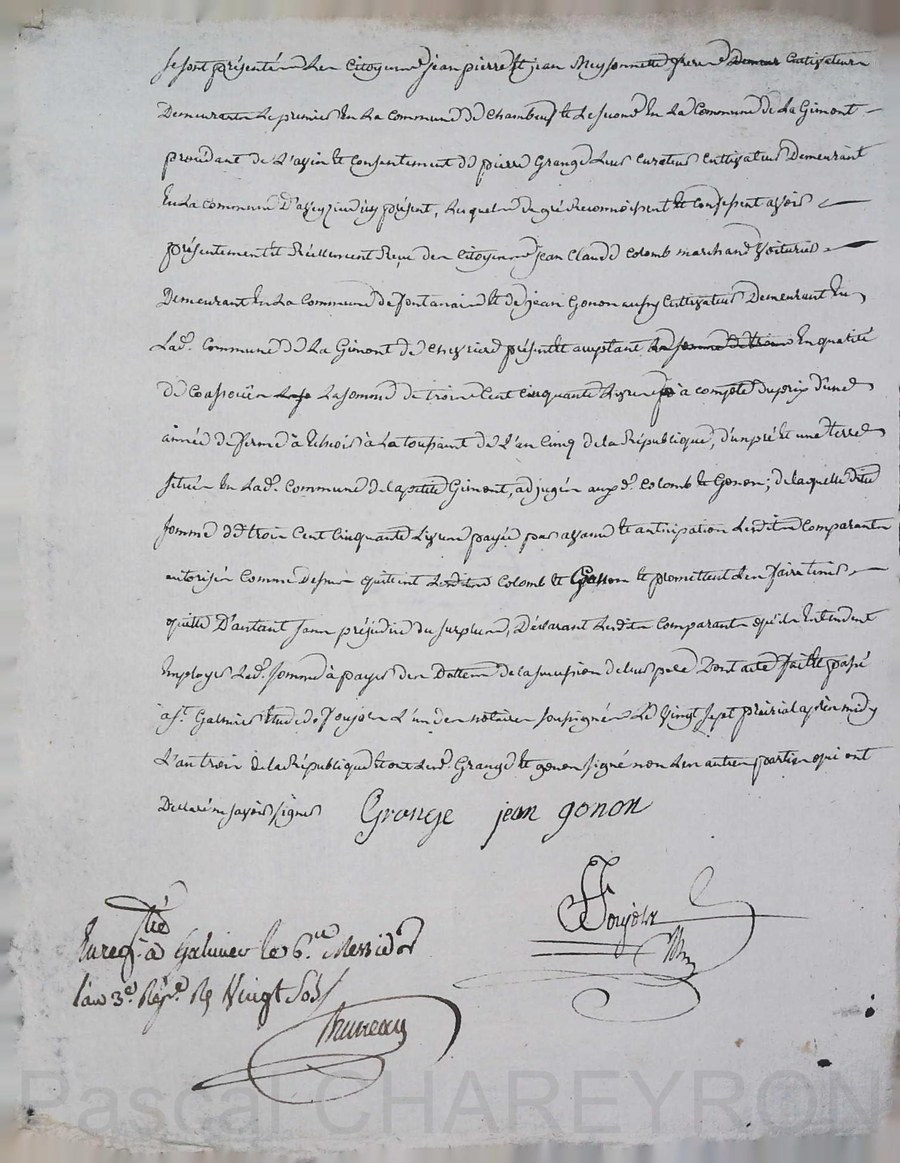 se sont présentés les citoyens jean pierre et jean Meysonnette freres Demeur Cultivateurs
Demeurants Le premier En La Commune de Chambeuf et Le second En La Commune de La Gimont
procédant de L'avis et Consentement de pierre Grange Leur Curateur Cultivateur Demeurant
En La Commune D'aveyzieu icy présent, Lesquels de gré Reconnoissent et Confessent avoir
présentement et Réellement Reçu des Citoyens jean Claude Colomb marchand Voiturier
Demeurant En La Commune de fontanais et de jean Gonon aussy Cultivateur Demeurant En
Lad. Commune de La Gimont de Chevrieres présent et acceptant La somme de trois En qualité
de Coassocié La somme de trois Cent cinquante Livres à compte du prix d'une
année de ferme à Echoir à La toussaint de L'an Cinq de la République, d'un pré et une terre
située En Lad. Commune de la petite Gimont, adjugés auxd. Colomb et Gonon; de laquelle dite
somme de trois Cent Cinquante Livres payée par avance et anticipation Lesdits Comparants
autorisés Comme Dessus quittent Lesdits Colomb et Gonon et promettent Les En faire tenir
quitte D'autant sans préjudice du surplus, Déclarant Lesdits Comparants qu'ils Entendent
Employer Lad. somme à payer des Dettes de la succession de leur pere Dont acte fait et passé
à St. Galmier Etude de Foujols L'un des notaires soussignés Le Vingt sept prairial après midy
L'an trois de la République et ont Lesd. Grange et gonon signé non Les autres parties qui ont
Déclaré ne savoir signer Grange jean gonon
Foujols
Enregtré à Galmier le 6. Messidor
l'an 3e. Rép. R Vingt Sols
Thureau
Pascal CHAREYRON